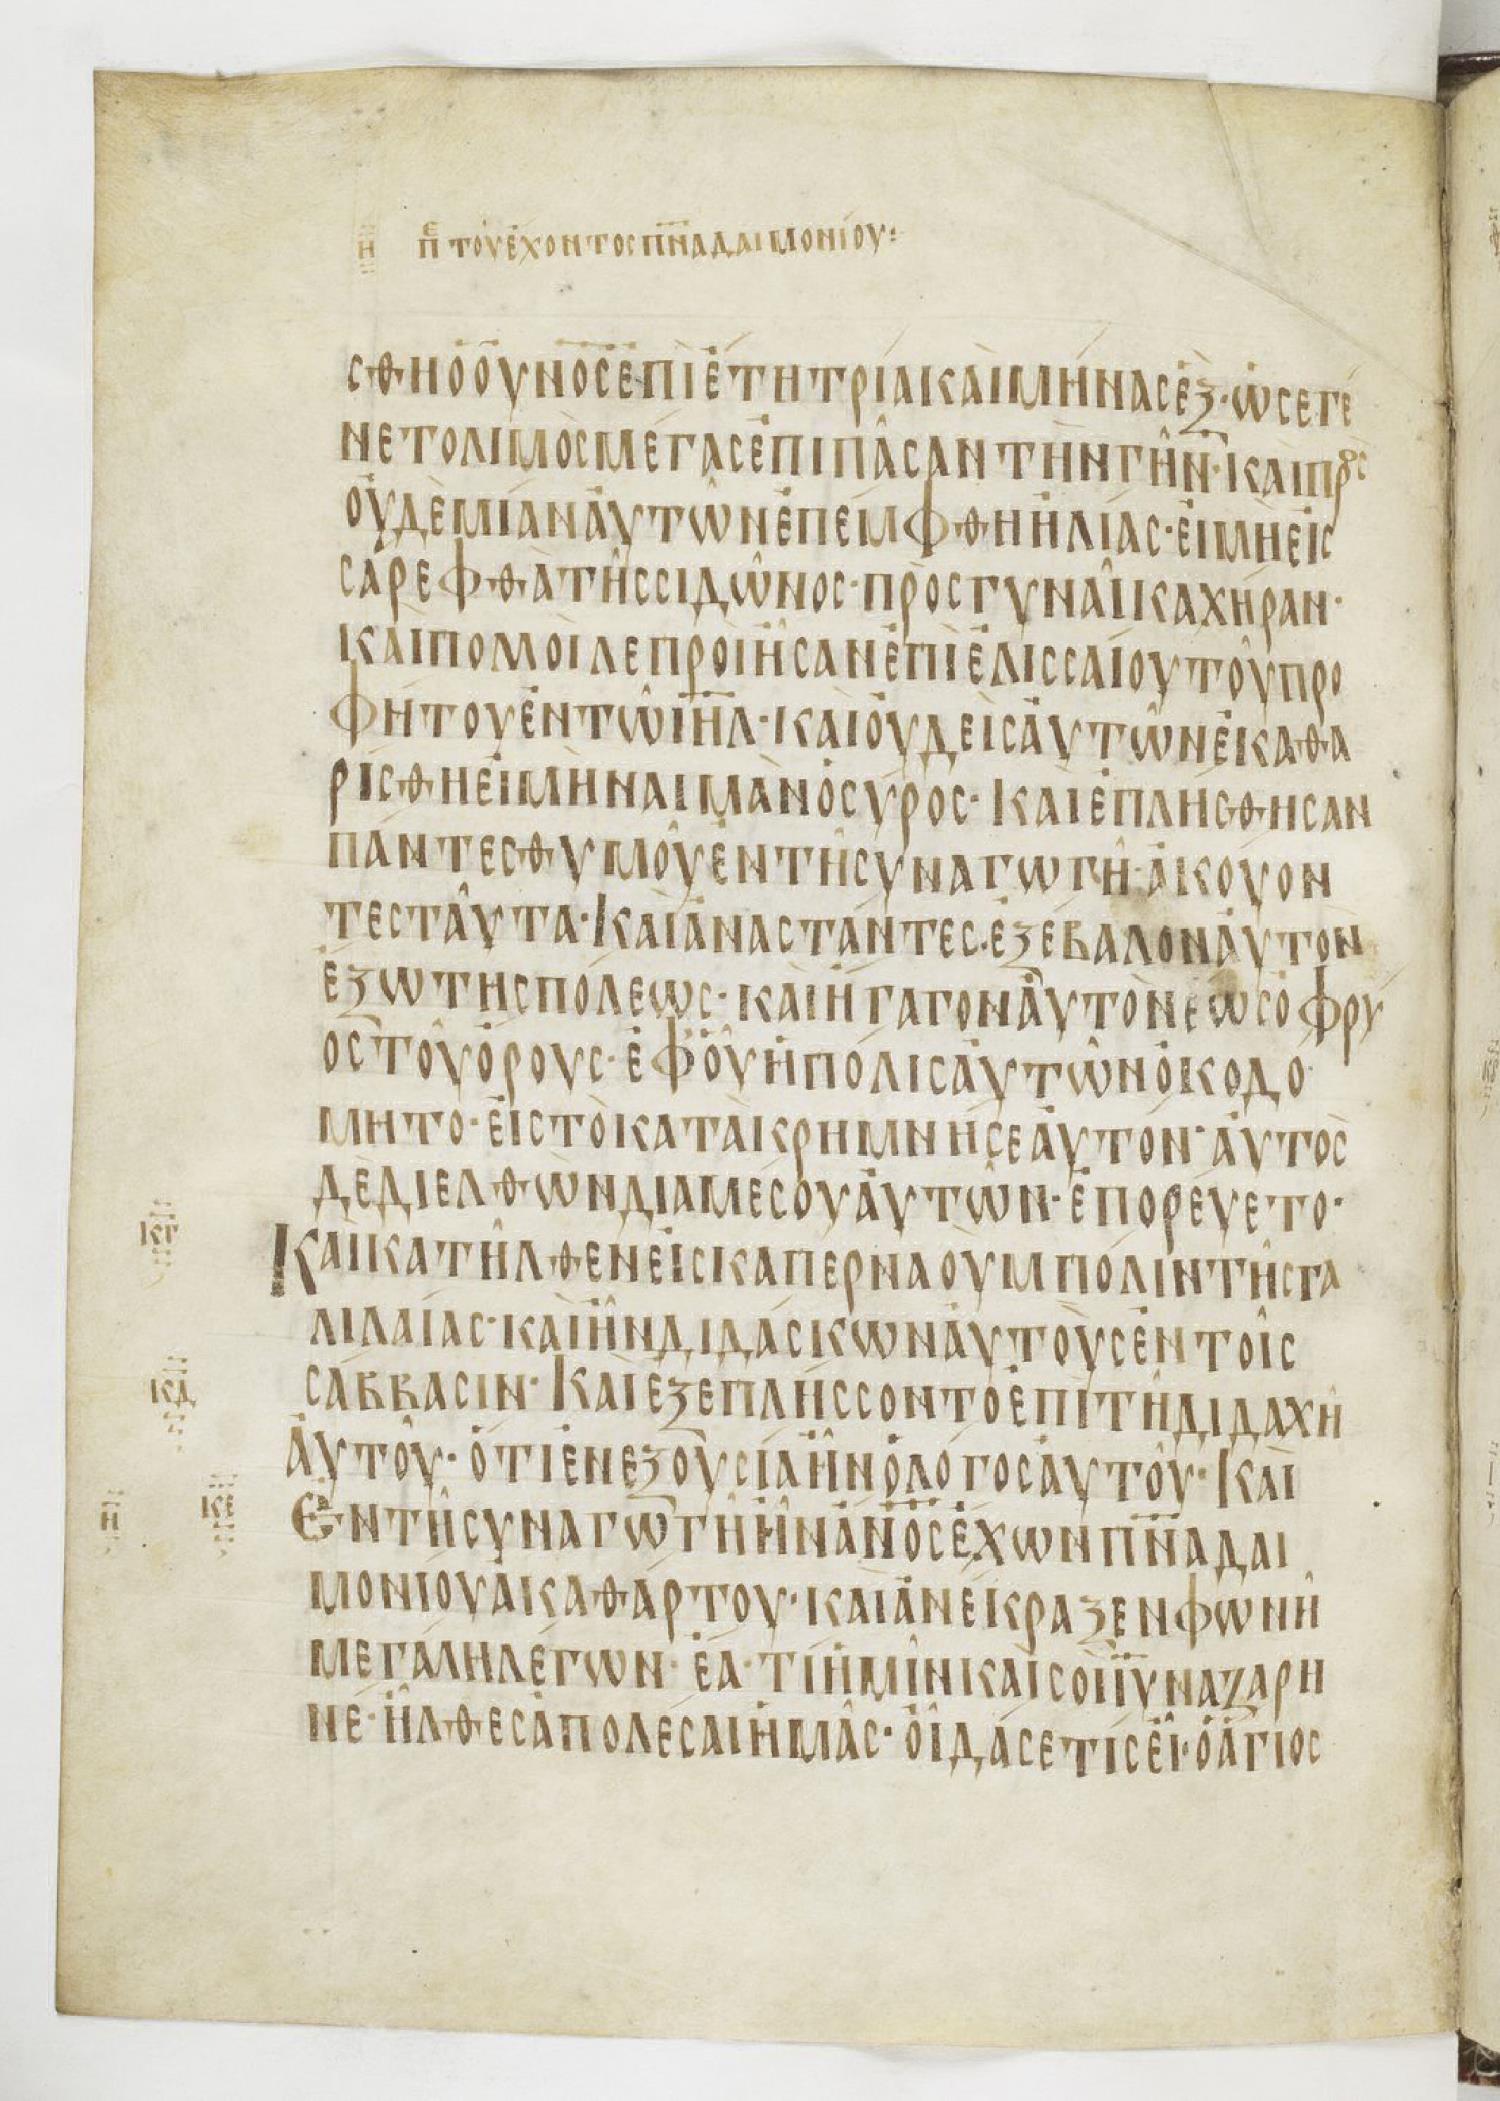 Η ΠΕ ΤΟΥ ΕΧΟΝΤΟΣ ΠΝΑ ΔΑΙΜΟΝΙΟΥ:
ΣΘΗ Ο ΟΥΝΟΣ ΕΠΙ ΕΤΗ ΤΡΙΑ ΚΑΙ ΜΗΝΑΣ ΕΞ· ΩΣ ΕΓΕ
ΝΕΤΟ ΛΙΜΟΣ ΜΕΓΑΣ ΕΠΙ ΠΑΣΑΝ ΤΗΝ ΓΗΝ· ΚΑΙ ΠΡΟΣ
ΟΥΔΕΜΙΑΝ ΑΥΤΩΝ ΕΠΕΜΦΘΗ ΗΛΙΑΣ· ΕΙ ΜΗ ΕΙΣ
ΣΑΡΕΦΘΑ ΤΗΣ ΣΙΔΩΝΟΣ· ΠΡΟΣ ΓΥΝΑΙΚΑ ΧΗΡΑΝ·
ΚΑΙ ΠΟΜΟΙ ΛΕΠΡΟΙ ΗΣΑΝ ΕΠΙ ΕΛΙΣΣΑΙΟΥ ΤΟΥ ΠΡΟ
ΦΗΤΟΥ ΕΝ ΤΩ ΙΗΛ· ΚΑΙ ΟΥΔΕΙΣ ΑΥΤΩΝ ΕΚΑΘΑ
ΡΙΣΘΗ ΕΙ ΜΗ ΝΑΙΜΑΝ Ο ΣΥΡΟΣ· ΚΑΙ ΕΠΛΗΣΘΗΣΑΝ
ΠΑΝΤΕΣ ΘΥΜΟΥ ΕΝ ΤΗ ΣΥΝΑΓΩΓΗ· ΑΚΟΥΟΝ
ΤΕΣ ΤΑΥΤΑ· ΚΑΙ ΑΝΑΣΤΑΝΤΕΣ· ΕΞΕΒΑΛΟΝ ΑΥΤΟΝ
ΕΞΩ ΤΗΣ ΠΟΛΕΩΣ· ΚΑΙ ΗΓΑΓΟΝ ΑΥΤΟΝ ΕΩΣ ΟΦΡΥ
ΟΣ ΤΟΥ ΟΡΟΥΣ· ΕΦ ΟΥ Η ΠΟΛΙΣ ΑΥΤΩΝ ΟΚΟΔΟ
ΜΗΤΟ· ΕΙΣ ΤΟ ΚΑΤΑΚΡΗΜΝΗΣΕ ΑΥΤΟΝ· ΑΥΤΟΣ
ΔΕ ΔΙΕΛΘΩΝ ΔΙΑ ΜΕΣΟΥ ΑΥΤΩΝ· ΕΠΟΡΕΥΕΤΟ·
ΚΓ ΚΑΙ ΚΑΤΗΛΘΕΝ ΕΙΣ ΚΑΠΕΡΝΑΟΥΜ ΠΟΛΙΝ ΤΗΣ ΓΑ
ΛΙΛΑΙΑΣ· ΚΑΙ ΗΝ ΔΙΔΑΣΚΩΝ ΑΥΤΟΥΣ ΕΝ ΤΟΙΣ
ΚΔ ΣΑΒΒΑΣΙΝ· ΚΑΙ ΕΞΕΠΛΗΣΣΟΝΤΟ ΕΠΙ ΤΗ ΔΙΔΑΧΗ
ΑΥΤΟΥ· ΟΤΙ ΕΝ ΕΞΟΥΣΙΑ ΗΝ Ο ΛΟΓΟΣ ΑΥΤΟΥ· ΚΑΙ
Η ΚΕ ΕΝ ΤΗ ΣΥΝΑΓΩΓΗ ΗΝ ΑΝΟΣ ΕΧΩΝ ΠΝΑ ΔΑΙ
ΜΟΝΙΟΥ ΑΚΑΘΑΡΤΟΥ· ΚΑΙ ΑΝΕΚΡΑΞΕΝ ΦΩΝΗ
ΜΕΓΑΛΗ ΛΕΓΩΝ· ΕΑ· ΤΙ ΗΜΙΝ ΚΑΙ ΣΟΙ ΙΥ ΝΑΖΑΡΗ
ΝΕ· ΗΛΘΕΣ ΑΠΟΛΕΣΑΙ ΗΜΑΣ· ΟΙΔΑ ΣΕ ΤΙΣ ΕΙ· Ο ΑΓΙΟΣ